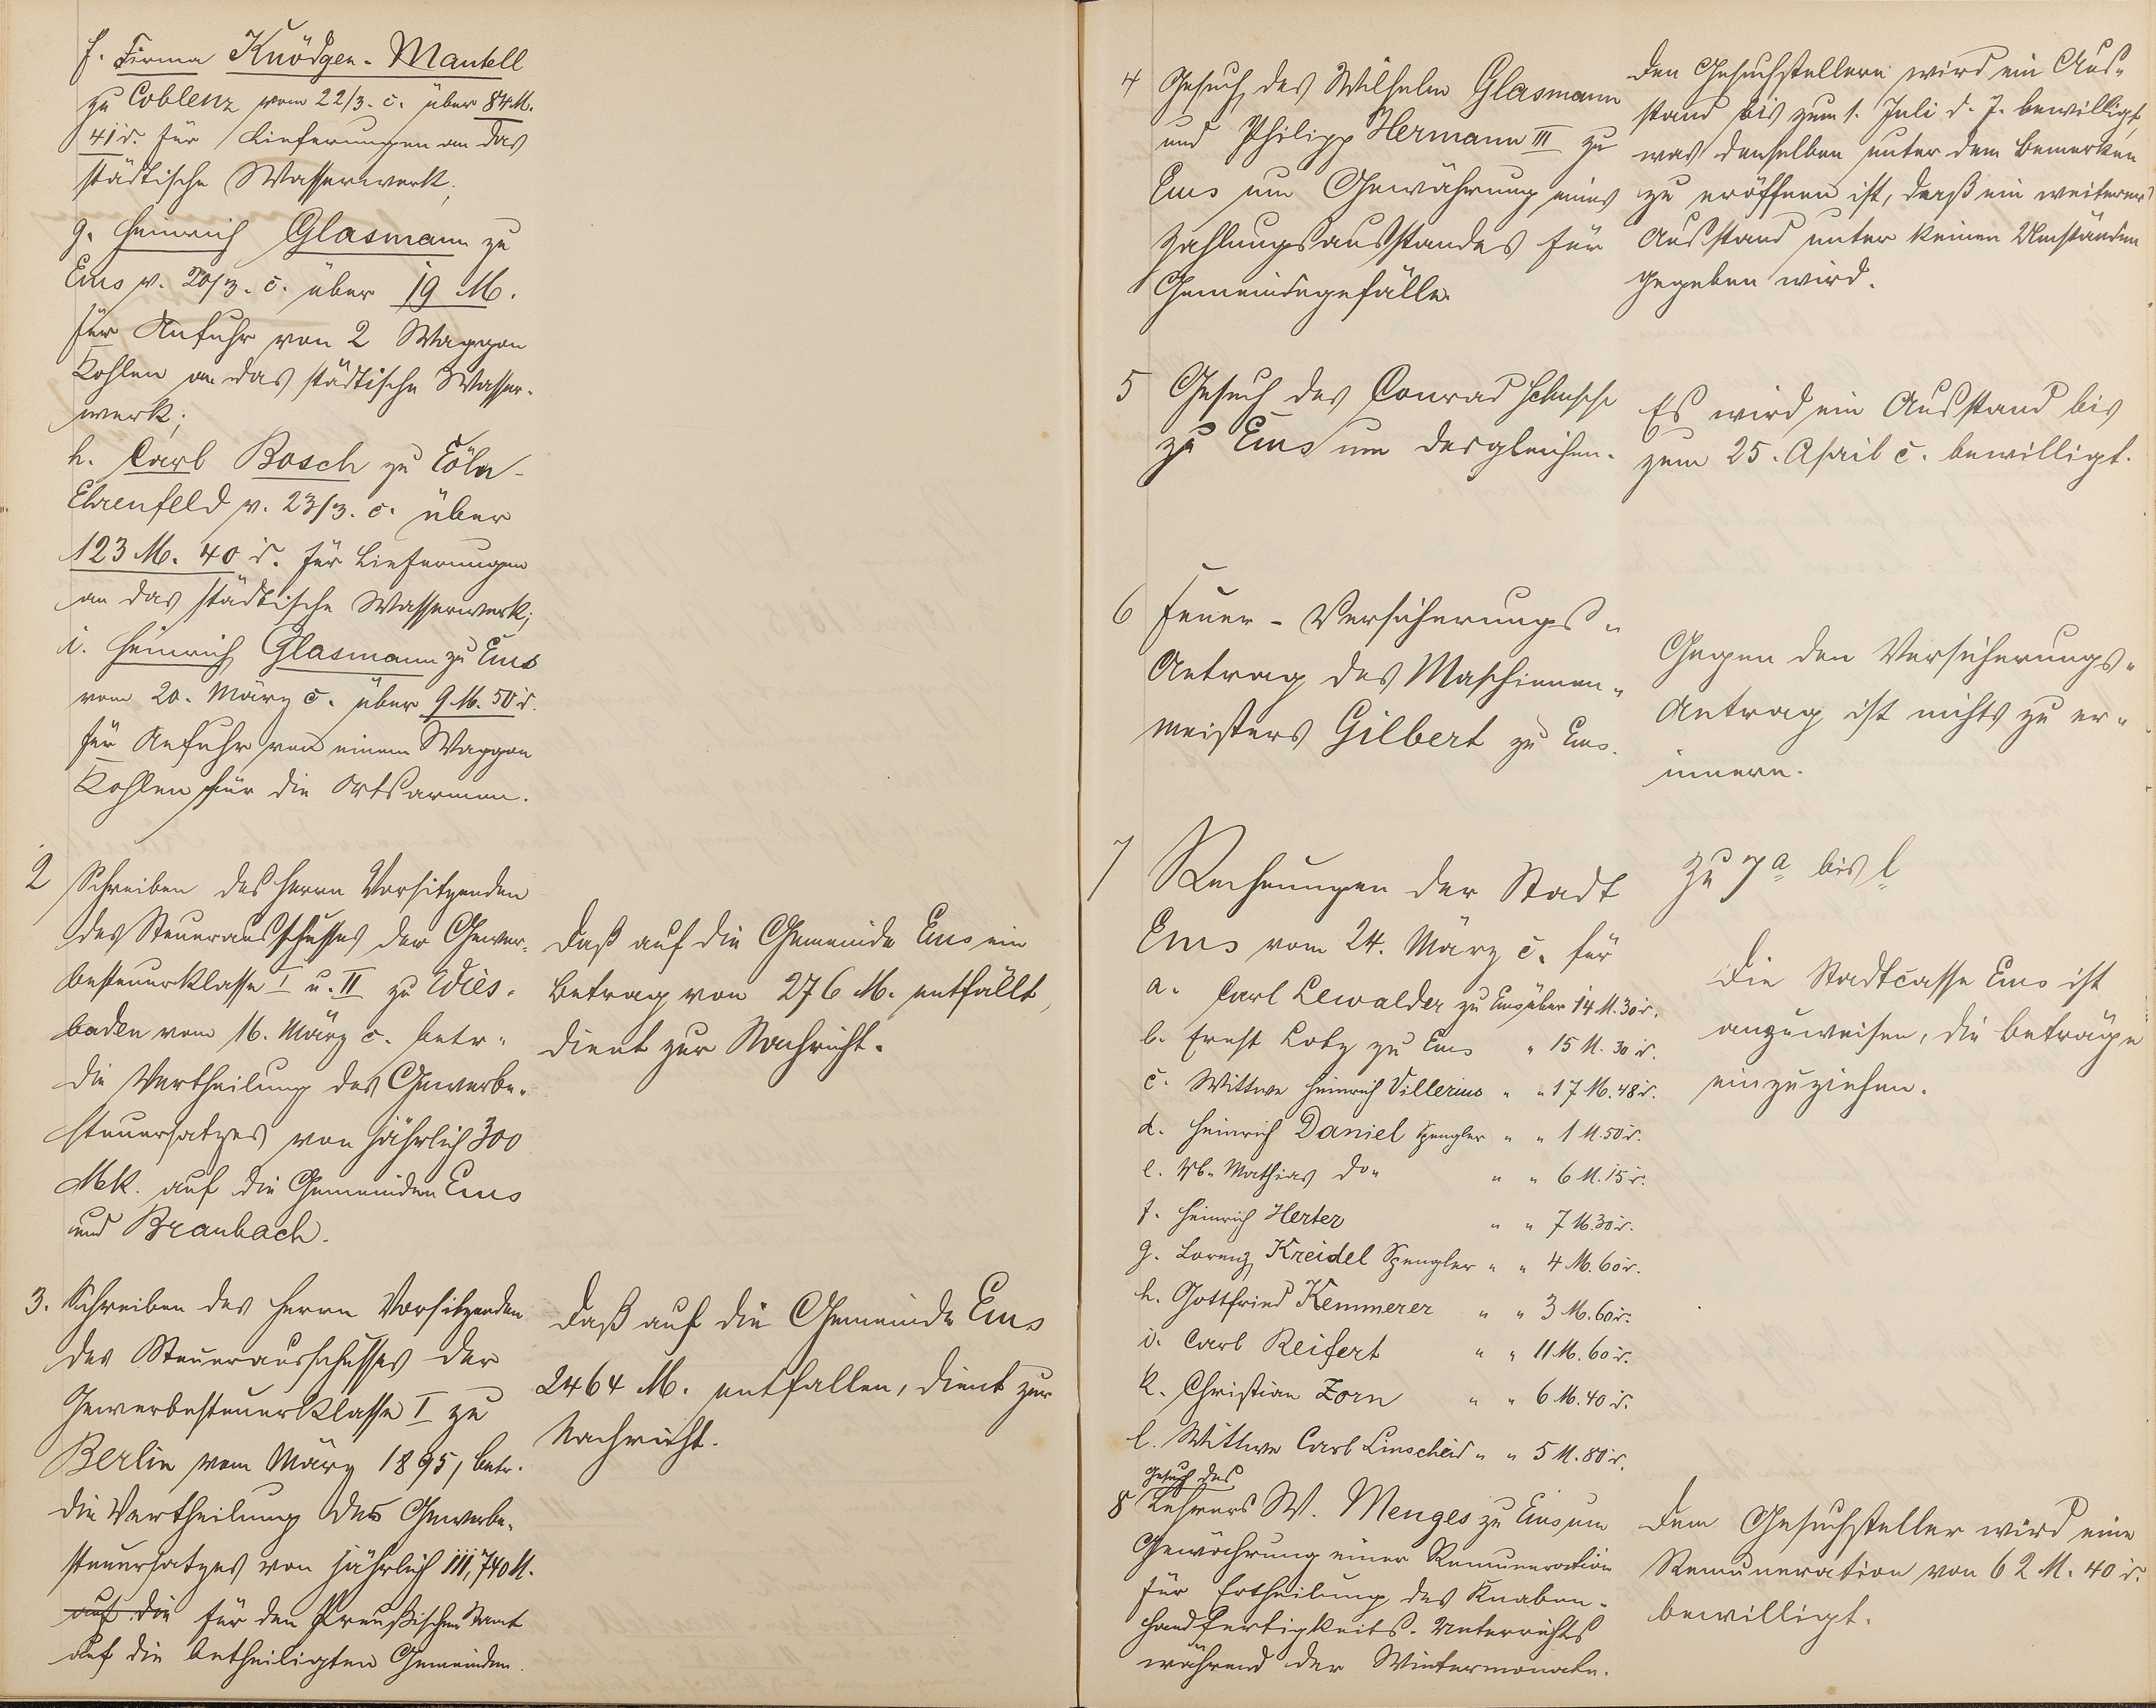 f. Firma Knödgen-Mantell
zu Coblenz vom 22/3. c. über 84 M.
41 ₰. für Lieferungen an das
städtische Wasserwerk;
g. Heinrich Glasmann zu
Ems v. 20/3. c. über 19 M.
für Anfuhr von 2 Waggon
Kohlen an das städtische Wasser-
werk;
h. Carl Bosch zu Cöln-
Ehrenfeld v. 23/3. c. über
123 M. 40 ₰. für Lieferungen
an das städtische Wasserwerk;
i. Heinrich Glasmann zu Ems
vom 20. März c. über 9 M. 50 ₰.
für Anfuhr von einem Waggon
Kohlen für die Ortsarmen.
2 Schreiben des Herrn Vorsitzenden
des Steuerausschusses der Gewer-
besteuerklasse I u. II zu Wies-
baden vom 16. März c. betr.
die Vertheilung des Gewerbe-
steuersatzes von jährlich 300
Mk. auf die Gemeinden Ems
und Braubach.
Daß auf die Gemeinde Ems ein
Betrag von 276 M. entfällt,
dient zur Nachricht.
3. Schreiben des Herrn Vorsitzenden
des Steuerausschusses der
Gewerbesteuerklasse I zu
Berlin vom März 1895, betr.
die Vertheilung des Gewerbe-
steuersatzes von jährlich 111,740 M.
auf die für den Preußischen Staat
auf die betheiligten Gemeinden.
Daß auf die Gemeinde Ems
2464 M. entfallen, dient zur
Nachricht.
4 Gesuch des Wilhelm Glasmann
und Philipp Hermann III zu
Ems um Gewährung eines
Zahlungsausstandes für
Gemeindegefälle.
Den Gesuchstellern wird ein Aus-
stand bis zum 1. Juli d. J. bewilligt,
was denselben unter dem Bemerken
zu eröffnen ist, daß ein weiterer
Ausstand unter keinen Umständen
gegeben wird.
5 Gesuch des Conrad
zu Ems um desgleichen.
Es wird ein Ausstand bis
zum 25. April c. bewilligt.
6 Feuer-Versicherungs-
Antrag des Maschinen-
meisters Gilbert zu Ems.
Gegen den Versicherungs-
Antrag ist nichts zu er-
innern.
7 Rechnungen der Stadt
Ems vom 24. März c. für
a. Carl Lewalder zu Ems über 14 M. 30 ₰.
b. Ernst Lotz zu Ems " 15 M. 30 ₰.
c. Wittwe Heinrich Villerius " " 17 M. 48 ₰.
d. Heinrich Daniel Spengler " " 1 M. 50 ₰.
e. Mathias do. " " 6 M. 15 ₰.
f. Heinrich Herter " " 7 M. 30 ₰.
g. Lorenz Kreidel Spengler " " 4 M. 60 ₰.
h. Gottfried Kemmerer " " 3 M. 60 ₰.
i. Carl Reifert " " 11 M. 60 ₰.
k. Christian Zorn " " 6 M. 40 ₰.
l. Wittwe Carl Linscheid " " 5 M. 80 ₰.
zu 7a bis l
Die Stadtcasse Ems ist
anzuweisen, die Beträge
einzuziehen.
Gesuch des
8 Lehrers W. Menges zu Ems um
Gewährung einer Remuneration
für Ertheilung des Knaben-
handfertigkeits-Unterrichts
während der Wintermonate.
Dem Gesuchsteller wird eine
Remuneration von 62 M. 40 ₰.
bewilligt.